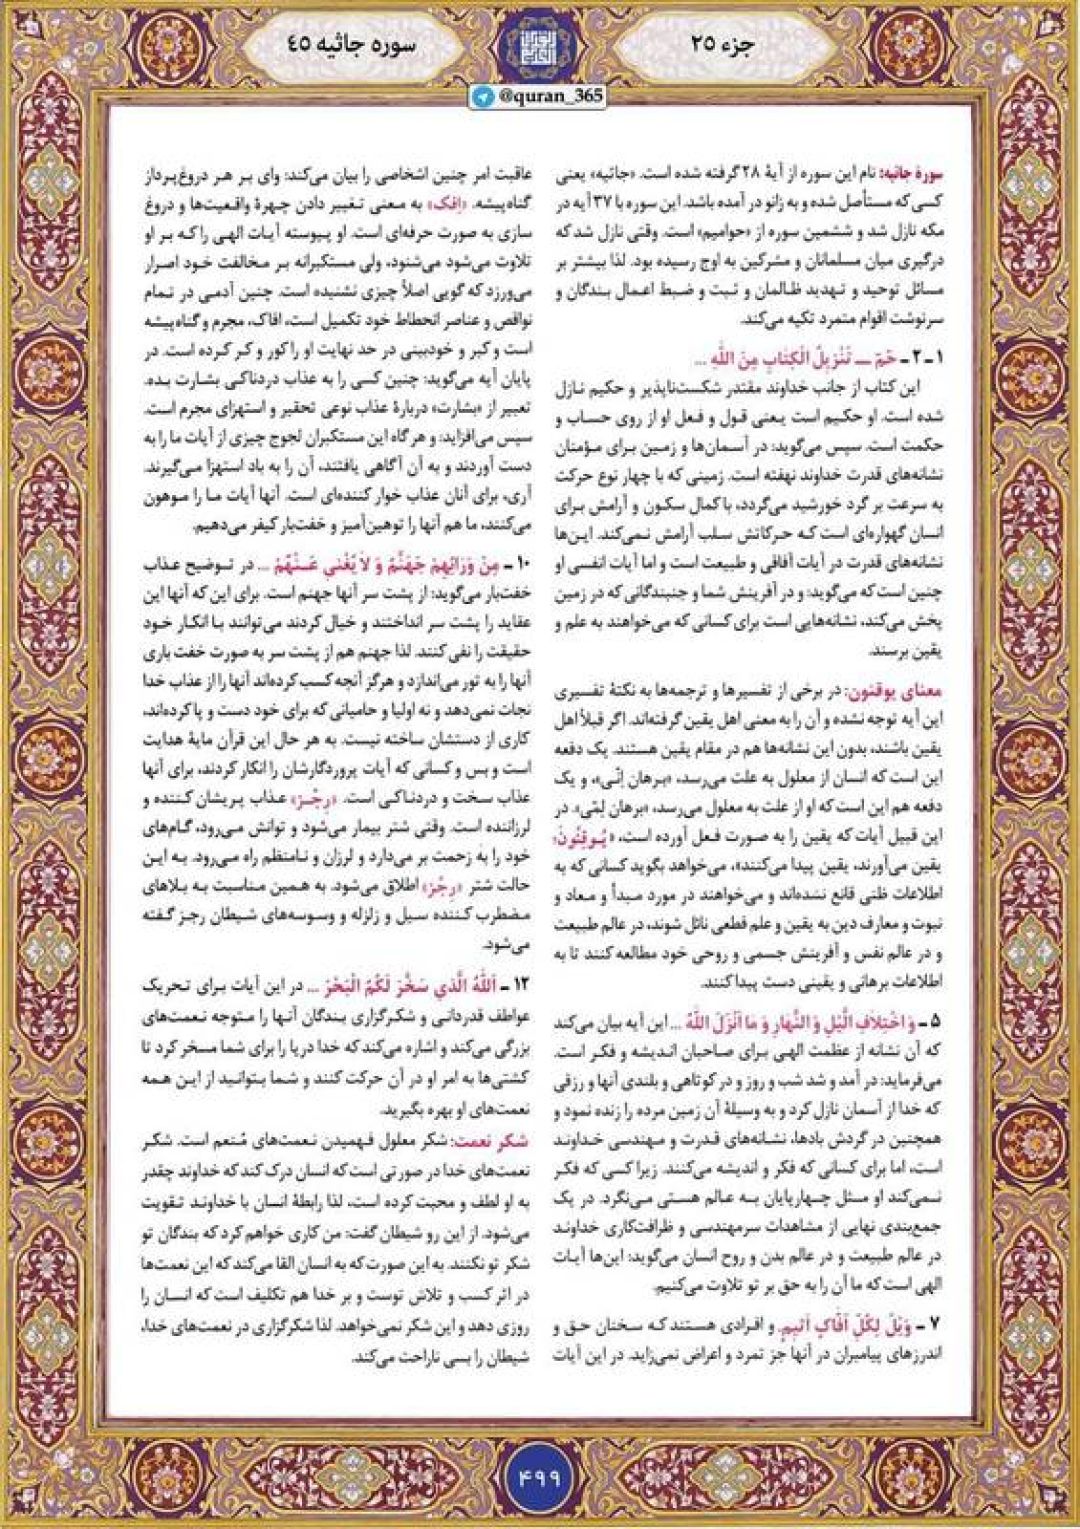 جزء ۲۵
سوره جاثیه ۴۵
@quran_365
سورهٔ جاثیه: نام این سوره از آیهٔ ۲۸ گرفته شده است. «جاثیه» یعنی
کسی که مستأصل شده و به زانو در آمده باشد. این سوره با ۳۷ آیه در
مکه نازل شد و ششمین سوره از «حوامیم» است. وقتی نازل شد که
درگیری میان مسلمانان و مشرکین به اوج رسیده بود. لذا بیشتر بر
مسائل توحید و تهدید ظالمان و ثبت و ضبط اعمال بندگان و
سرنوشت اقوام متمرد تکیه می‌کند.
۱ـ۲ـ حمٓ ـــ تَنْزِیلُ الْکِتَابِ مِنَ اللّٰهِ ...
این کتاب از جانب خداوند مقتدر شکست‌ناپذیر و حکیم نازل
شده است. او حکیم است یعنی قول و فعل او از روی حساب و
حکمت است. سپس می‌گوید: در آسمان‌ها و زمین برای مؤمنان
نشانه‌های قدرت خداوند نهفته است. زمینی که با چهار نوع حرکت
به سرعت بر گرد خورشید می‌گردد، با کمال سکون و آرامش برای
انسان گهواره‌ای است کـه حرکاتش سلب آرامش نمی‌کند. این‌ها
نشانه‌های قدرت در آیات آفاقی و طبیعت است و اما آیات انفسی او
چنین است که می‌گوید: و در آفرینش شما و جنبندگانی که در زمین
پخش می‌کند، نشانه‌هایی است برای کسانی که می‌خواهند به علم و
یقین برسند.
معنای یوقنون: در برخی از تفسیرها و ترجمه‌ها به نکتهٔ تفسیری
این آیه توجه نشده و آن را به معنی اهل یقین گرفته‌اند. اگر قبلاً اهل
یقین باشند، بدون این نشانه‌ها هم در مقام یقین هستند. یک دفعه
این است که انسان از معلول به علت می‌رسد، «برهان إنّی»، و یک
دفعه هم این است که او از علت به معلول می‌رسد، «برهان لمّی». در
این قبیل آیات که یقین را به صورت فعل آورده است، «یُـوقِنُونَ»
یقین می‌آورند، یقین پیدا می‌کنند»، می‌خواهد بگوید کسانی که به
اطلاعات ظنّی قانع نشده‌اند و می‌خواهند در مورد مبدأ و معاد و
نبوت و معارف دین به یقین و علم قطعی نائل شوند، در عالم طبیعت
و در عالم نفس و آفرینش جسمی و روحی خود مطالعه کنند تا به
اطلاعات برهانی و یقینی دست پیدا کنند.
۵ ـ وَ اخْتِلَافِ الَّیْلِ وَ النَّهَارِ وَ مَا أَنْزَلَ اللّٰهُ ... این آیه بیان می‌کند
که آن نشانه از عظمت الهی برای صاحبان اندیشه و فکر است.
می‌فرماید: در آمد و شد شب و روز و در کوتاهی و بلندی آنها و رزقی
که خدا از آسمان نازل کرد و به وسیلهٔ آن زمین مرده را زنده نمود و
همچنین در گردش بادها، نشانه‌های قدرت و مهندسی خداوند
است، اما برای کسانی که فکر و اندیشه می‌کنند. زیرا کسی که فکر
نـمی‌کند او مـثل چـهارپایان بـه عـالم هستی مـی‌نگرد. در یک
جمع‌بندی نهایی از مشاهدات سرمهندسی و ظرافت‌کاری خداوند
در عالم طبیعت و در عالم بدن و روح انسان می‌گوید: این‌ها آیـات
الهی است که ما آن را به حق بر تو تلاوت می‌کنیم.
۷ ـ وَیْلٌ لِکُلِّ أَفَّاکٍ أَثِیمٍ. و افرادی هستند کـه سخنان حق و
اندرزهای پیامبران در آنها جز تمرد و اعراض نمی‌زاید. در این آیات
عاقبت امر چنین اشخاصی را بیان می‌کند: وای بر هر دروغ‌پرداز
گناه‌پیشه. «افک» به معنی تغییر دادن چهرهٔ واقعیت‌ها و دروغ
سازی به صورت حرفه‌ای است. او پـیوسته آیـات الهـی را کـه بر او
تلاوت می‌شود می‌شنود، ولی مستکبرانه بر مـخالفت خـود اصـرار
می‌ورزد که گویی اصلاً چیزی نشنیده است. چنین آدمی در تـمام
نواقص و عناصر انحطاط خود تکمیل است، افاک، مجرم و گناه‌پیشه
است و کبر و خودبینی در حد نهایت او را کور و کـر کـرده است. در
پایان آیه می‌گوید: چنین کسی را به عذاب دردناکـی بشارت بـده.
تعبیر از «بشارت» دربارهٔ عذاب نوعی تحقیر و استهزای مجرم است.
سپس می‌افزاید: و هر گاه این مستکبران لجوج چیزی از آیات ما را به
دست آوردند و به آن آگاهی یافتند، آن را به باد استهزا مـی‌گیرند.
آری، برای آنان عذاب خوار کننده‌ای است. آنها آیات مـا را مـوهون
می‌کنند، ما هم آنها را توهین‌آمیز و خفت‌بار کیفر می‌دهیم.
۱۰ ـ مِنْ وَرَائِهِمْ جَهَنَّمُ وَ لَا یُغْنِی عَـنْهُمْ ... در تـوضیح عذاب
خفت‌بار می‌گوید: از پشت سر آنها جهنم است. برای این که آنها این
عقاید را پشت سر انداختند و خیال کردند می‌توانند بـا انکار خـود
حقیقت را نفی کنند. لذا جهنم هم از پشت سر به صورت خفت باری
آنها را به تور می‌اندازد و هرگز آنچه کسب کرده‌اند آنها را از عذاب خدا
نجات نمی‌دهد و نه اولیا و حامیانی که برای خود دست و پا کرده‌اند،
کاری از دستشان ساخته نیست. به هر حال این قرآن مایهٔ هدایت
است و بس و کسانی که آیات پروردگارشان را انکار کردند، برای آنها
عذاب سخت و دردناکی است. «رِجْـز» عذاب پریشان کننده و
لرزاننده است. وقتی شتر بیمار می‌شود و توانش مـی‌رود، گـام‌های
خود را به زحمت بر می‌دارد و لرزان و نـامنظم راه مـی‌رود. بـه ایـن
حالت شتر «رِجْز» اطلاق می‌شود. به همین مناسبت به بـلاهای
مـضطرب کـننده سیل و زلزله و وسوسه‌های شیطان رجـز گـفته
می‌شود.
۱۲ ـ اَللّٰهُ الَّذِی سَخَّرَ لَکُمُ الْبَحْرَ ... در این آیات برای تحریک
عواطف قدردانی و شکرگزاری بندگان آنها را متوجه نعمت‌های
بزرگی می‌کند و اشاره می‌کند که خدا دریا را برای شما مسخر کرد تا
کشتی‌ها به امر او در آن حرکت کنند و شما بـتوانید از ایـن هـمه
نعمت‌های او بهره بگیرید.
شکر نعمت: شکر معلول فـهمیدن نـعمت‌های مُنعم است. شکـر
نعمت‌های خدا در صورتی است که انسان درک کند که خداوند چقدر
به او لطف و محبت کرده است، لذا رابطهٔ انسان با خداوند تـقویت
می‌شود. از این رو شیطان گفت: من کاری خواهم کرد که بندگان تو
شکر تو نکنند. به این صورت که به انسان القا می‌کند که این نعمت‌ها
در اثر کسب و تلاش توست و بر خدا هم تکلیف است که انسان را
روزی دهد و این شکر نمی‌خواهد. لذا شکرگزاری در نعمت‌های خدا،
شیطان را بسی ناراحت می‌کند.
۴۹۹